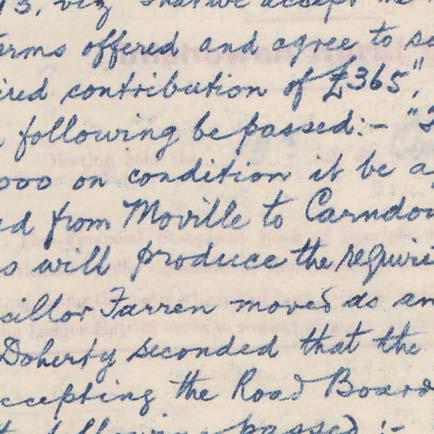 13, viz that we accept the
terms offered and agree to
ired contribution of £365",
following be passed:- "
000 on condition it be a
ed from Moville to Carndo
s will produce the requir
cillor Farren moved as an
Doherty seconded that the
ccepting the Road Board
following passed :-